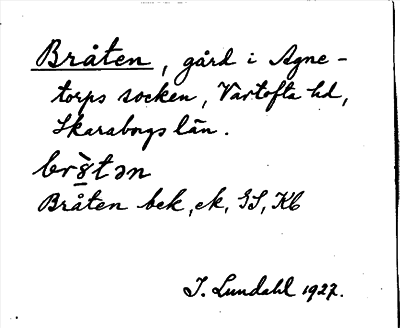 Bråten, gård i Agne-
torps socken, Vartofta hd,
Skaraborgs län.
br8̀tən
Bråten bek, ek, GS, Kb
I. Lundahl 1927.